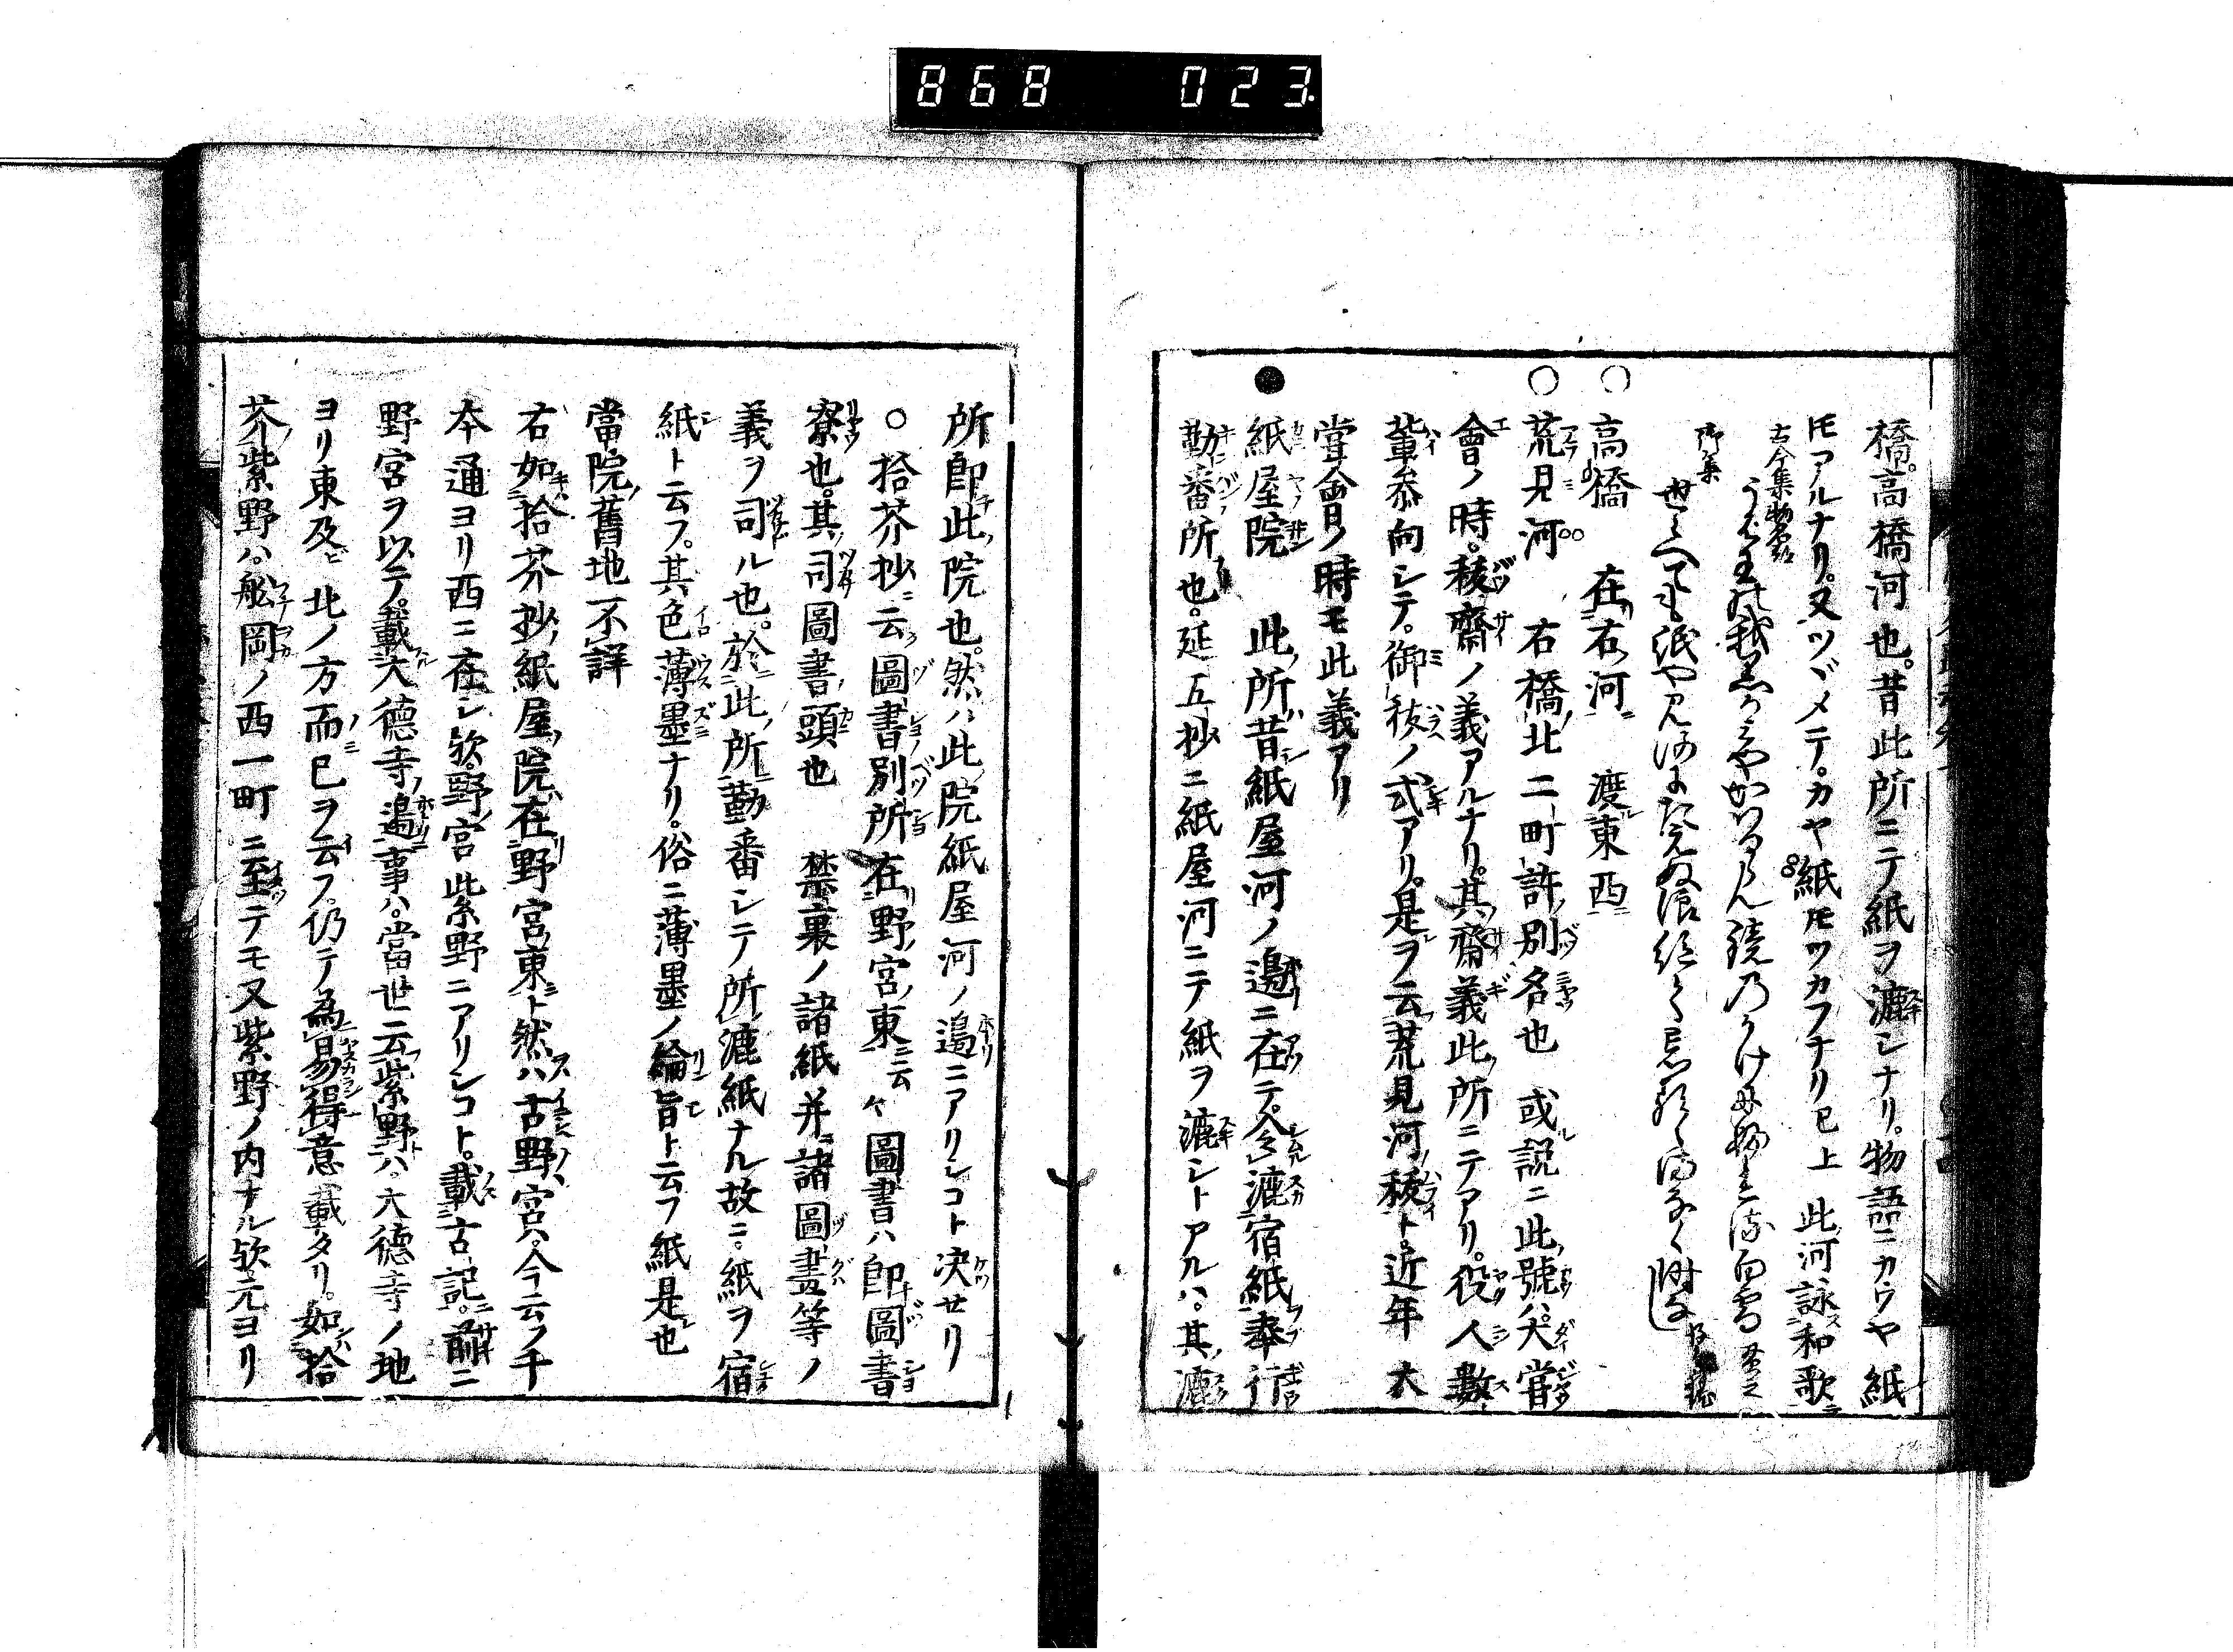 868 023
橋。高橋河也。昔此所ニテ紙ヲ漉シナリ。物語ニカウヤ紙
トモアルナリ。又ツヾメテ。カヤ紙トモツカフナリ已上 此河詠和歌
古今集物名
高橋 在右河 渡東西
荒見河 右橋北二町許別名也 或説ニ此號ハ大嘗
會ノ時。秡齋ノ義アルナリ。其齋義此所ニテアリ。役人數
輩参向シテ。御秡ノ式アリ。是ヲ云荒見河秡ト。近年大
嘗會ノ時モ此義アリ
紙屋院 此所昔紙屋河ノ邉ニ在テ。令漉宿紙奉行
勤番所也。延五抄ニ紙屋河ニテ紙ヲ漉シトアルハ。其漉
所即此院也。然ハ此院紙屋河ノ邉ニアリシコト決セリ
○拾芥抄云圖書別所在野宮東云々 圖書ハ即圖書
寮也。其司圖書頭也 禁裏ノ諸紙并諸圖畫等ノ
義ヲ司ル也。於此所勤番シテ所漉紙ナル故ニ紙ヲ宿
紙ト云フ。其色薄墨ナリ。俗ニ薄墨ノ綸旨ト云フ紙是也
當院舊地不詳
右如拾芥抄紙屋院在野宮東ト然ハ古野宮ハ今云フ千
本通ヨリ西ニ在シ欤。野宮紫野ニアリシコト。載古記。前ニ
野宮ヲ以テ。載大德寺邉事ハ。當世云紫野ハ。大徳寺ノ地
ヨリ東及北ノ方而已ヲ云フ。仍テ為易得意載タリ。如拾
芥紫野ハ。舩岡ノ西一町ニ至テモ又紫野ノ内ナル欤元ヨリ